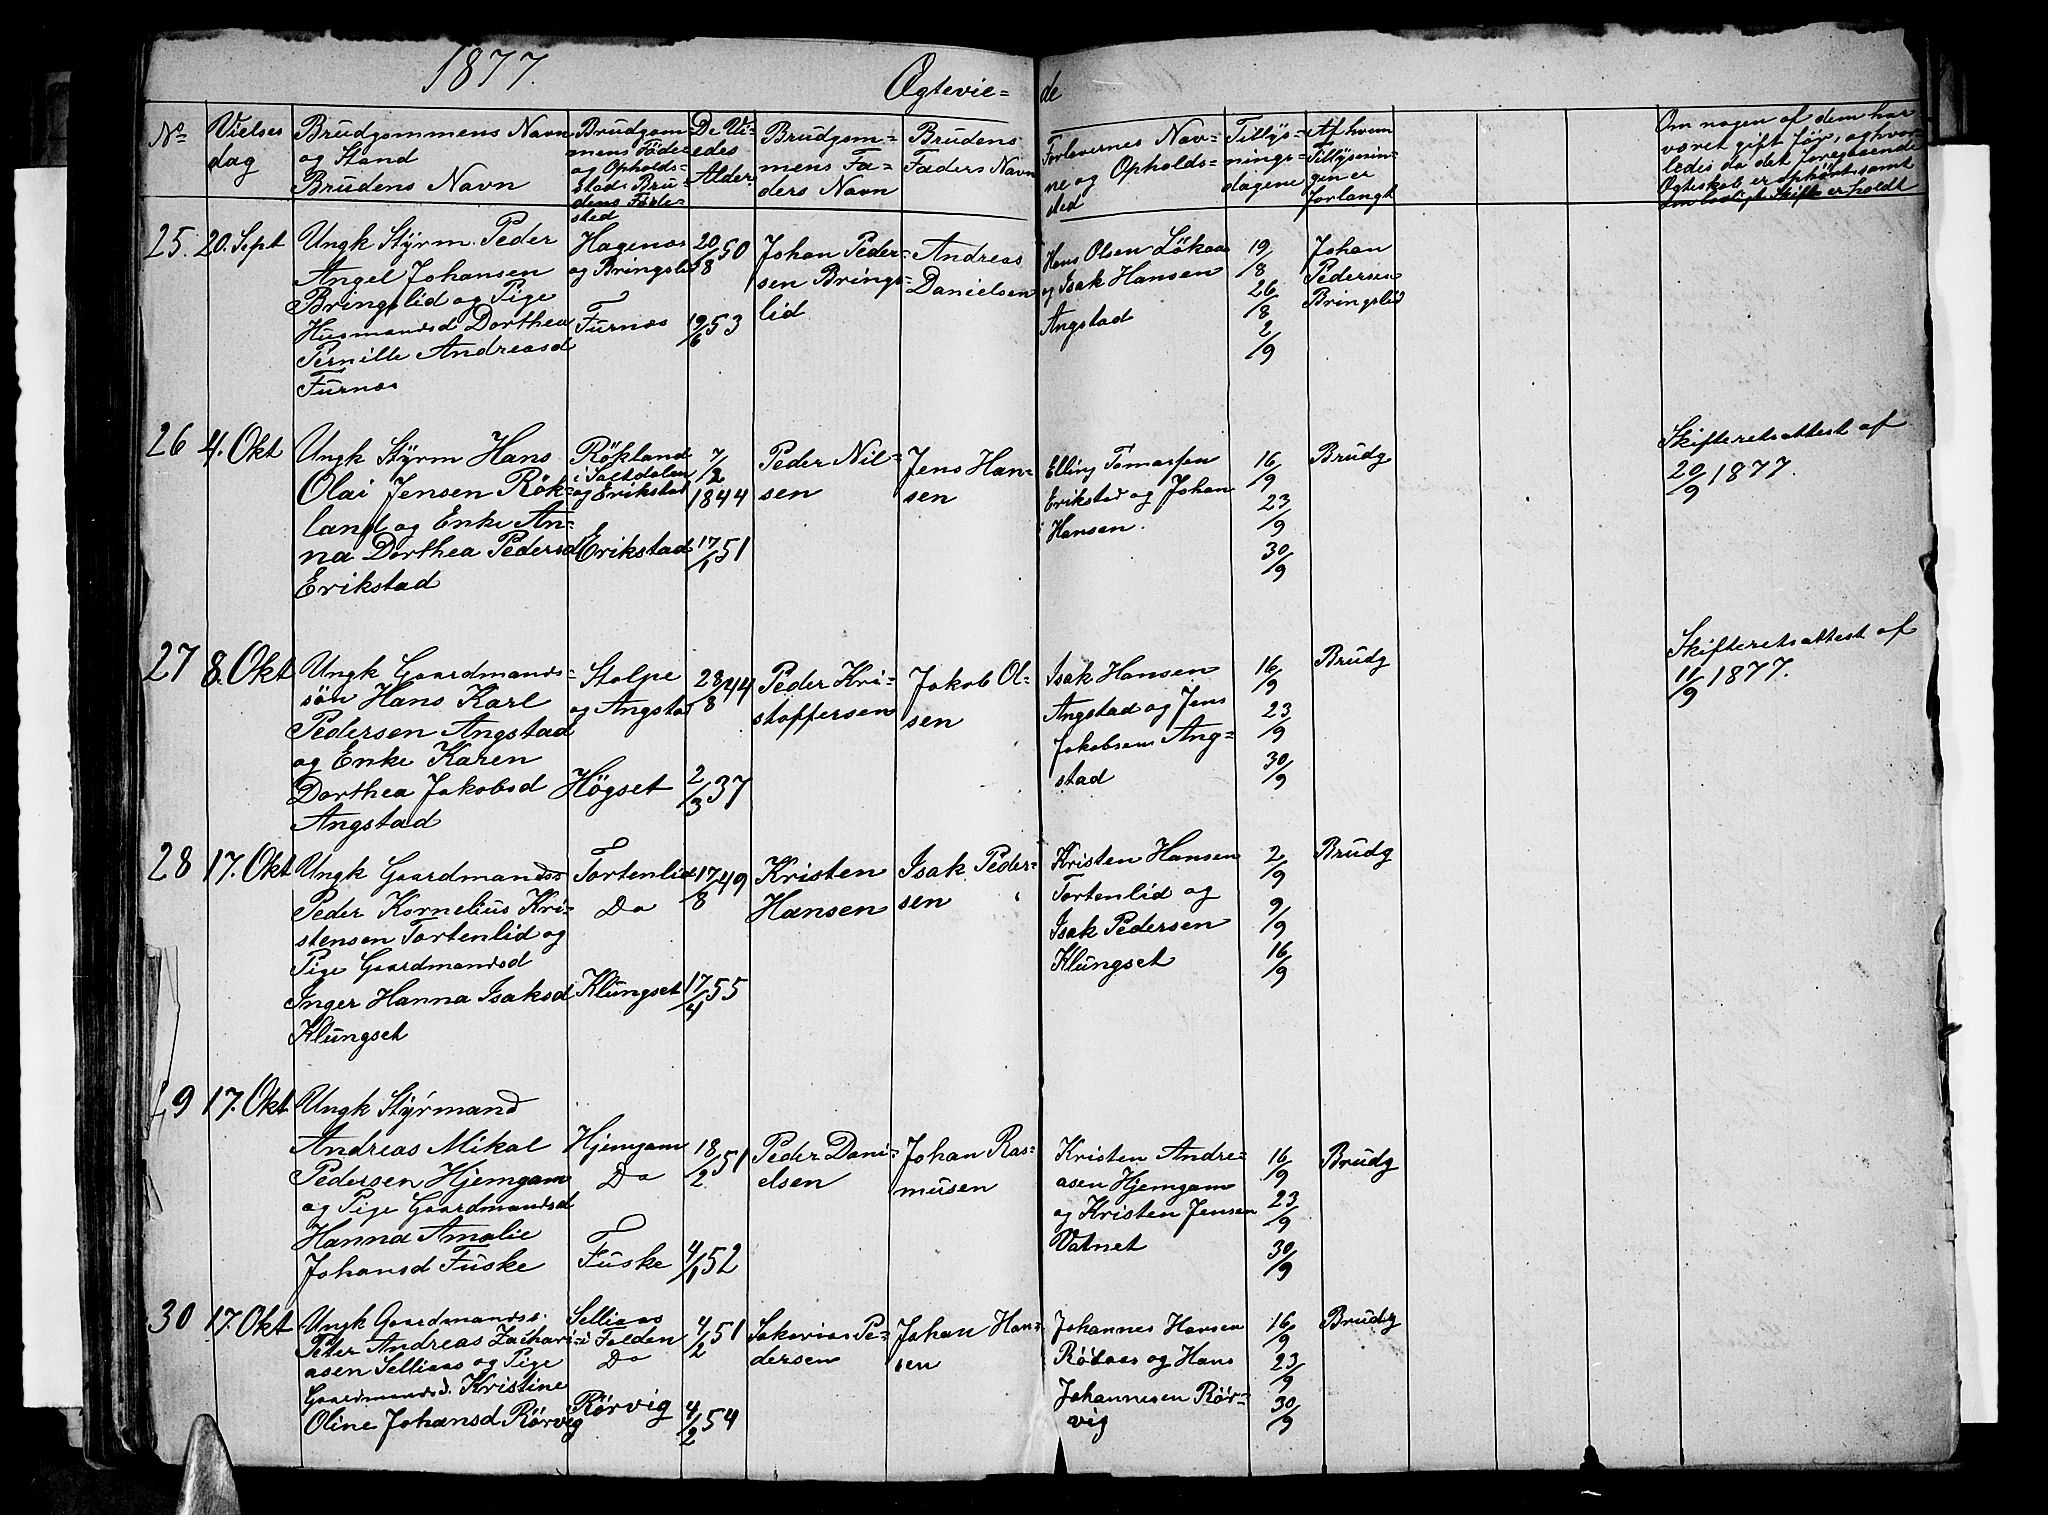 1877.
Ægtevie= de
No
Vielses
dag
Brudgommens Navn
og Stand
Brudens Navn
Brudgom=
mens Føde=
og Opholds=
sted. Bru=
dens Føde=
sted
De Vi=
edes
Alder
Brudgom=
mens Fa=
ders Navn
Brudens
Faders Navn
Forlovernes Nav=
ne og Opholds=
sted
Tillys=
nings=
dagene
Af hvem
Tillysnin=
gen er
forlangt
Om nogen af dem har
været gift før, og hvor=
ledes da det foregaaende
Ægteskab er ophørt samt
om lovligt Skifte er holdt
25. 20. Sept
Ungk Styrm. Peder
Angel Johansen
Bringslid og Pige
Husmandsd Dorthea
Pernille Andreasd
Furnes
Hagenes
og Bringslid
Furnes
20/8 50
19/6 53
Johan Peder=
sen Brings=
lid
Andreas
Danielsen
Hans Olsen Løkaas
og Isak Hansen
Angstad
19/8
26/8
2/9
Johan
Pedersen
Bringslid
26 4. Okt
Ungk Styrm Hans
Olai Jensen Røk=
land og Enke An=
na Dorthea Pedersd
Erikstad
Rökland
i Saltdalen
og Erikstad
Erikstad
7/2
1844
17/1 51
Peder Nil=
sen
Jens Han=
sen
Elling Tomassen
Erikstad og Johan
Hansen.
16/9
23/9
30/9
Brudg
Skifteretsattest af
20/9 1877.
27 8. Okt
Ungk Gaardmands=
søn Hans Karl
Pedersen Angstad
og Enke Karen
Dorthea Jakobsd
Angstad
Stolpe
og Angstad
Högset
28/8 44
2/3 37
Peder Kri=
stoffersen
Jakob Ol=
sen
Isak Hansen
Angstad og Jens
Jakobsen Ang=
stad
16/9
23/9
30/9
Brudg
Skifteretsattest af
11/9 1877.
28 17. Okt
Ungk Gaardmandss
Peder Kornelius Kri=
stensen Tortenlid og
Pige Gaardmandsd
Inger Hanna Isaksd
Klungset
Tortenlid
Do
Klungset
17/8 49
17/4 55
Kristen
Hansen
Isak Peder=
sen
Kristen Hansen
Tortenlid og
Isak Pedersen
Klungset
2/9
9/9
16/9
Brudg
9 17. Okt
Ungk Styrmand
Andreas Mikal
Pedersen Hjemgam
og Pige Gaardmandsd
Hanna Amalie
Johansd Fuske
Hjemgam
Do
Fuske
18/2 51
4/1 52
Peder Dani=
elsen
Johan Ras=
musen
Kristen Andre=
asen Hjemgam
og Kristen Jensen
Vatnet
16/9
23/9
30/9
Brudg
30 17. Okt
Ungk Gaardmandss.
Peter Andreas Zachari=
asen Selliaas og Pige
Gaardmandsd. Kristine
Oline Johansd Rørvig
Selliaas
i Folden
Do
Rørvig
4/2 51
4/2 54
Sakarias Pe=
dersen
Johan Han=
sen
Johannes Hansen
Røtaas og Hans
Johannesen Rør=
vig
16/9
23/9
30/9
Brudg